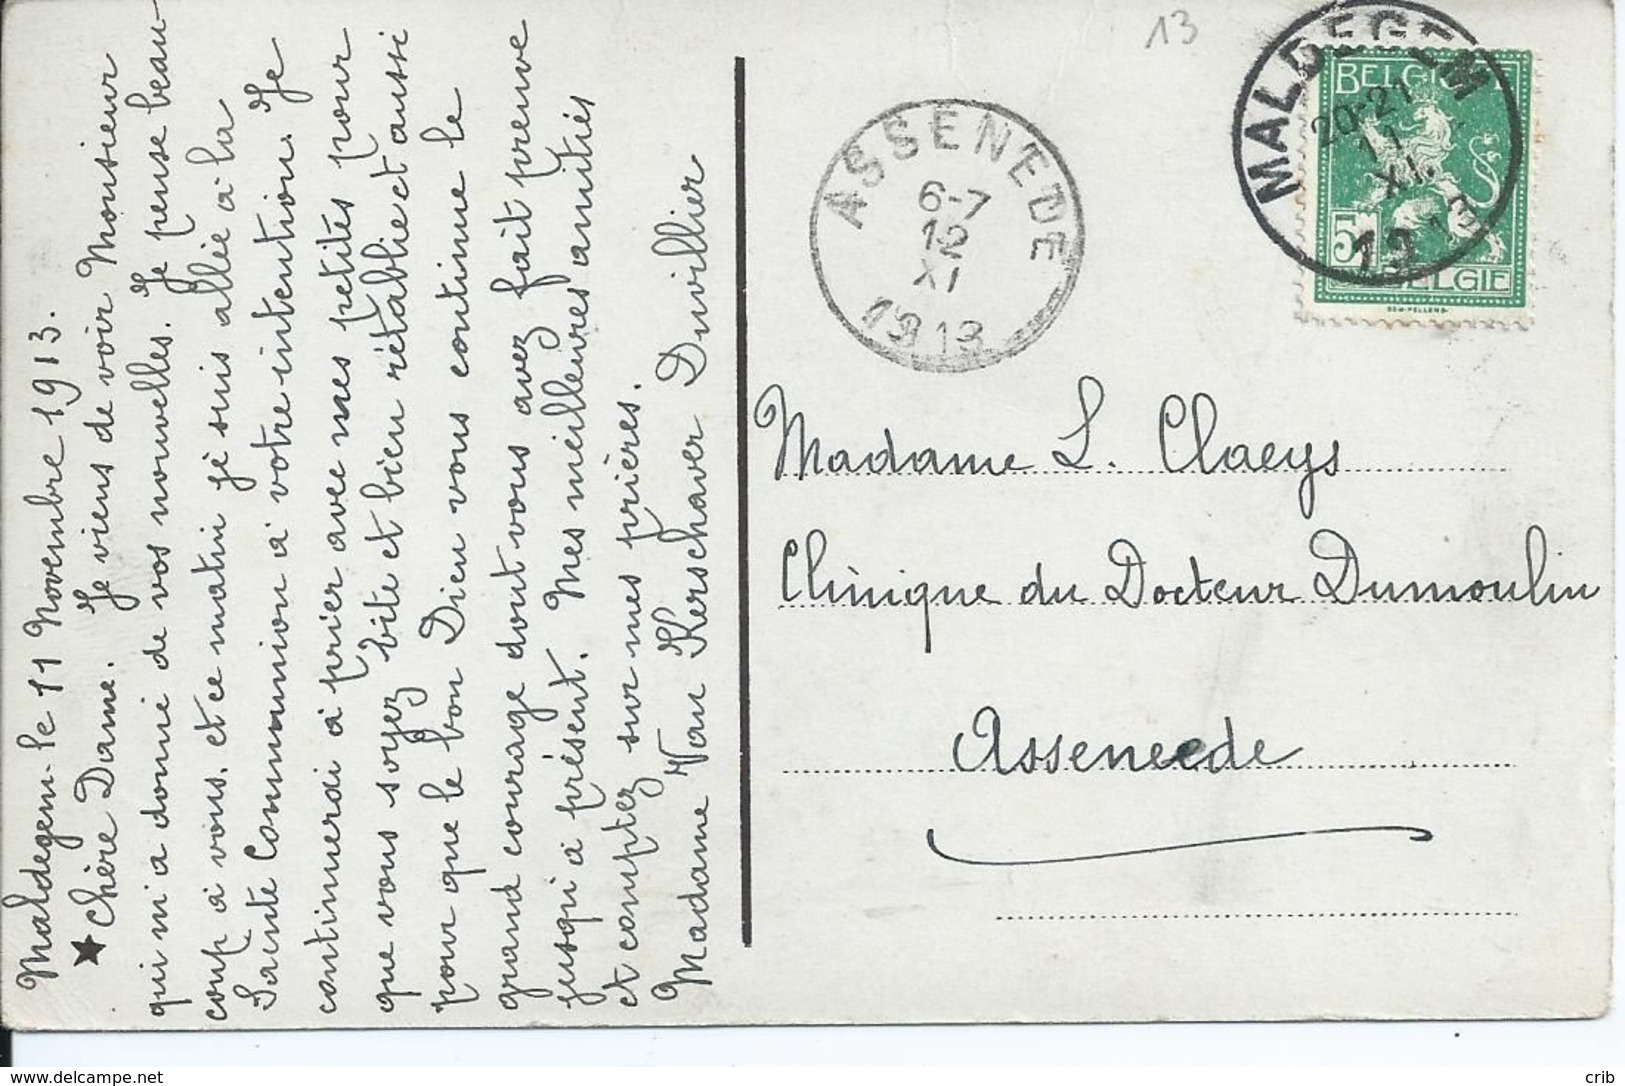 Maldegem - le 11 Novembre 1913.
Chère Dame. Je viens de voir Monsieur
qui m'a donné de vos nouvelles. Je pense beau-
coup à vous, et ce matin je suis allée à la
Sainte Communion à votre intention. Je
continuerai à prier avec mes petites pour
que vous soyez vite et bien rétablie et aussi
pour que le bon Dieu vous continue le
grand courage dont vous avez fait preuve
jusqu'à présent. Mes meilleures amitiés
et comptez sur mes prières.
Madame Van Kerschaver Duvillier
13
ASSENEDE
6-7
12
XI
1913
MALDEGEM
20-21
11
XI
13
BELGIQUE
5
BELGIE
Madame L. Claeys
Clinique du Docteur Dumoulin
Asseneede
http://www.delcampe.net
crib